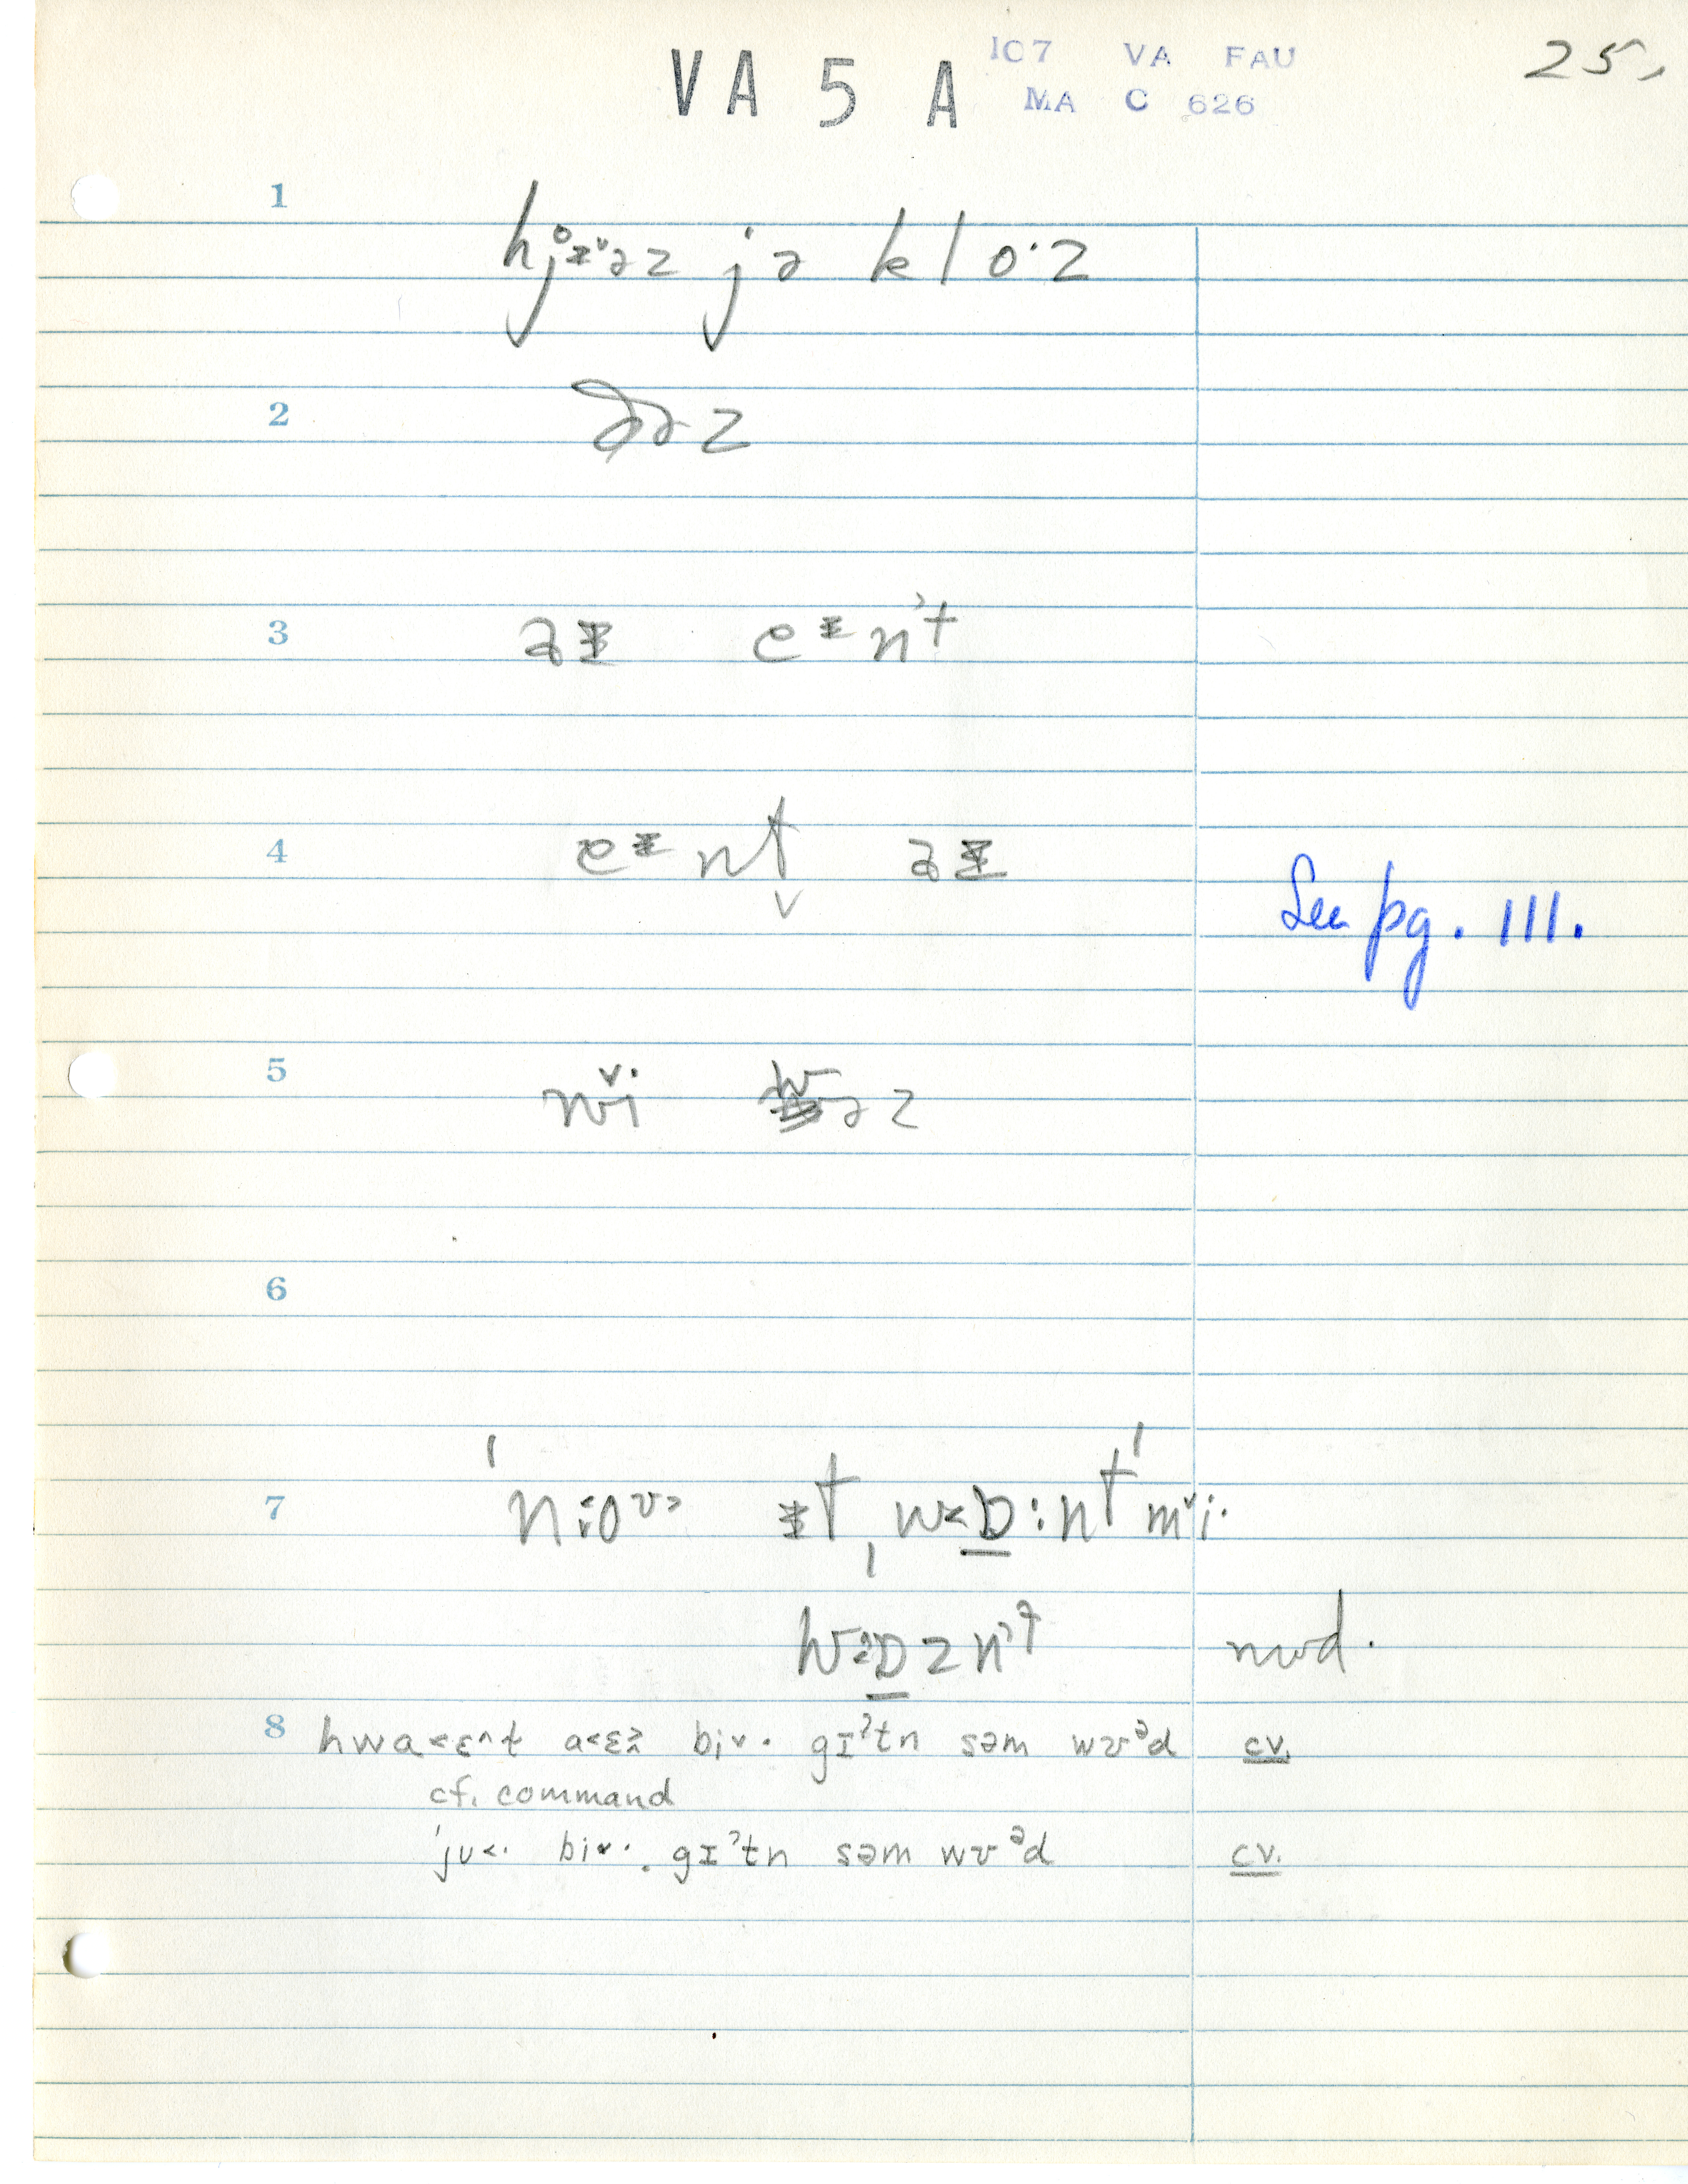 VA 5 A 107 VA FAU 25.
MA C 626
1
hj̊ɪ̵ˇəz jə klo·z
2
ðəz
3
əɪ̵ eɪ̵nʾt
4
eɪ̵nt̬ əɪ̵
See pg. 111.
5
wi̬· wəz
6
7
ˈn:oʊ> ɪ̵tˌw<ɒ̲:ntˈmˇi·
wɒ̲znʾt mwd.
8 hwa<ɛ^t a<ɛ> biˇ· gɪʔtn səm wʊᵊd cv.
cf. command
ˈju<· biˇ·. gɪʔtn səm wʊᵊd cv.